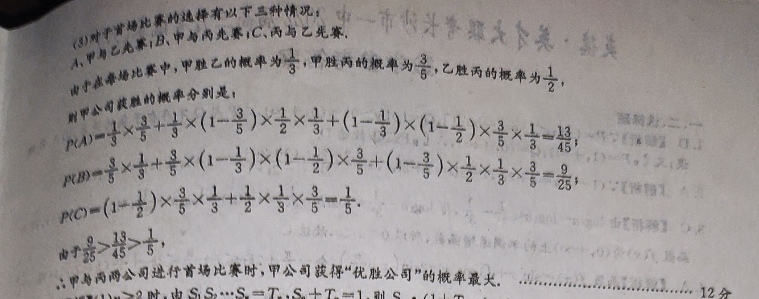 (3)对于首场比赛的选择有以下三种情况:
A、甲与乙先赛;B、甲与丙先赛;C、丙与乙先赛.
由于在每场比赛中,甲胜乙的概率为1/3,甲胜丙的概率为3/5,乙胜丙的概率为1/2,
则甲公司获胜的概率分别是:
P(A)=1/3×3/5+1/3×(1-3/5)×1/2×1/3+(1-1/3)×(1-1/2)×3/5×1/3=13/45;
P(B)=3/5×1/3+3/5×(1-1/3)×(1-1/2)×3/5+(1-3/5)×1/2×1/3×3/5=9/25;
P(C)=(1-1/2)×3/5×1/3+1/2×1/3×3/5=1/5.
由于9/25>13/45>1/5,
∴甲与丙两公司进行首场比赛时,甲公司获得“优胜公司”的概率最大. 12分
≥2时,由S₁S₂…Sₙ=Tₙ,Sₙ+Tₙ=1,则